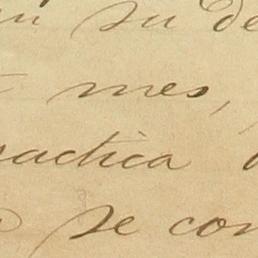 su de
mes,
ractica
se con